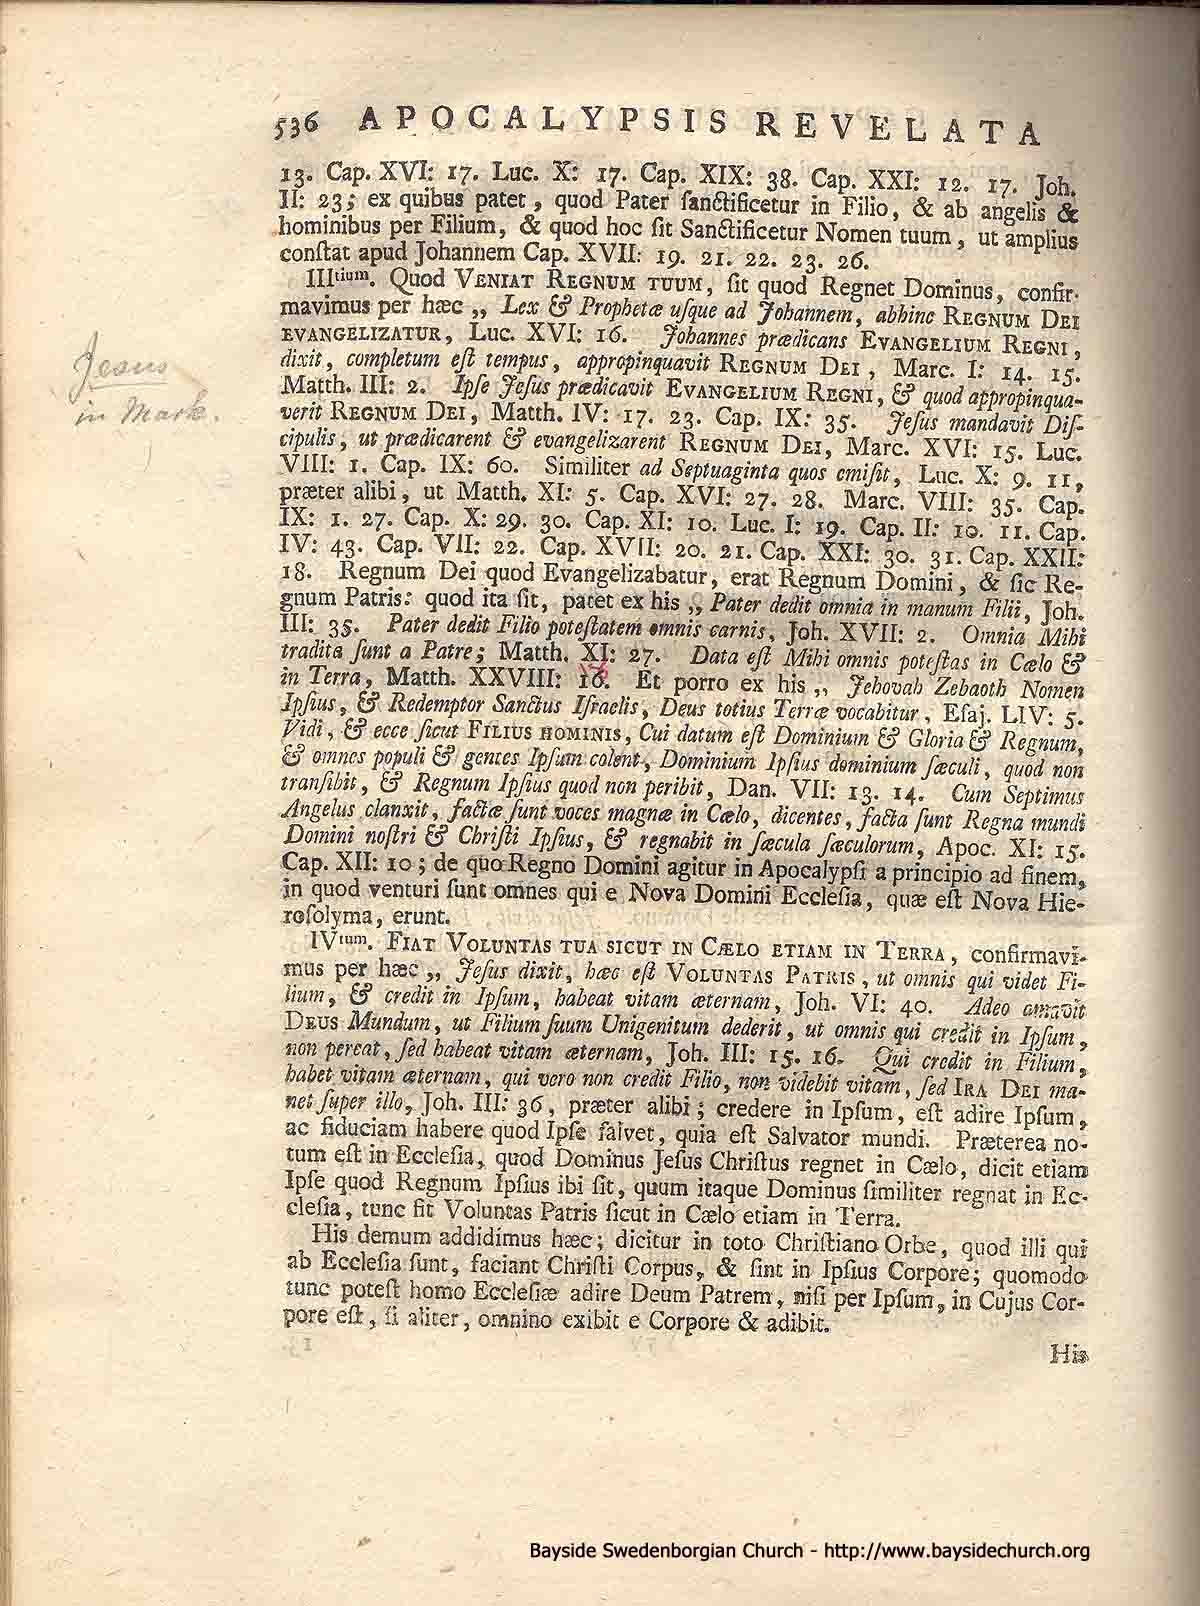 536 APOCALYPSIS REVELATA
13. Cap. XVI: 17. Luc. X: 17. Cap. XIX: 38. Cap. XXI: 12. 17. Joh.
II: 23; ex quibus patet, quod Pater ſanctificetur in Filio, & ab angelis &
hominibus per Filium, & quod hoc ſit Sanctificetur Nomen tuum, ut amplius
conſtat apud Johannem Cap. XVII: 19. 21. 22. 23. 26.
IIItium. Quod VENIAT REGNUM TUUM, ſit quod Regnet Dominus, confir-
mavimus per hæc „ Lex & Prophetæ uſque ad Johannem, abhinc REGNUM DEI
EVANGELIZATUR, Luc. XVI: 16. Johannes prædicans EVANGELIUM REGNI,
dixit, completum eſt tempus, appropinquavit REGNUM DEI, Marc. I: 14. 15.
Matth. III: 2. Ipſe Jeſus prædicavit EVANGELIUM REGNI, & quod appropinqua-
verit REGNUM DEI, Matth. IV: 17. 23. Cap. IX: 35. Jeſus mandavit Diſ-
cipulis, ut prædicarent & evangelizarent REGNUM DEI, Marc. XVI: 15. Luc.
VIII: 1. Cap. IX: 60. Similiter ad Septuaginta quos emiſit, Luc. X: 9. 11,
præter alibi, ut Matth. XI: 5. Cap. XVI: 27. 28. Marc. VIII: 35. Cap.
IX: 1. 27. Cap. X: 29. 30. Cap. XI: 10. Luc. I: 19. Cap. II: 10. 11. Cap.
IV: 43. Cap. VII: 22. Cap. XVII: 20. 21. Cap. XXI: 30. 31. Cap. XXII:
18. Regnum Dei quod Evangelizabatur, erat Regnum Domini, & ſic Re-
gnum Patris: quod ita ſit, patet ex his „ Pater dedit omnia in manum Filii, Joh.
III: 35. Pater dedit Filio poteſtatem omnis carnis, Joh. XVII: 2. Omnia Mihi
tradita ſunt a Patre; Matth. XI: 27. Data eſt Mihi omnis poteſtas in Cælo &
in Terra, Matth. XXVIII: 16. Et porro ex his „ Jehovah Zebaoth Nomen
Ipſius, & Redemptor Sanctus Iſraelis, Deus totius Terræ vocabitur, Eſaj. LIV: 5.
Vidi, & ecce ſicut FILIUS HOMINIS, Cui datum eſt Dominium & Gloria & Regnum,
& omnes populi & gentes Ipſum colent, Dominium Ipſius dominium ſæculi, quod non
tranſibit, & Regnum Ipſius quod non peribit, Dan. VII: 13. 14. Cum Septimus
Angelus clanxit, factæ ſunt voces magnæ in Cælo, dicentes, facta ſunt Regna mundi
Domini noſtri & Chriſti Ipſius, & regnabit in ſæcula ſæculorum, Apoc. XI: 15.
Cap. XII: 10; de quo Regno Domini agitur in Apocalypſi a principio ad finem,
in quod venturi ſunt omnes qui e Nova Domini Eccleſia, quæ eſt Nova Hie-
roſolyma, erunt.
IVtum. FIAT VOLUNTAS TUA SICUT IN CÆLO ETIAM IN TERRA, confirmavi-
mus per hæc „ Jeſus dixit, hæc eſt VOLUNTAS PATRIS, ut omnis qui videt Fi-
lium, & credit in Ipſum, habeat vitam æternam, Joh. VI: 40. Adeo amavit
DEUS Mundum, ut Filium ſuum Unigenitum dederit, ut omnis qui credit in Ipſum,
non pereat, ſed habeat vitam æternam, Joh. III: 15. 16. Qui credit in Filium,
habet vitam æternam, qui vero non credit Filio, non videbit vitam, ſed IRA DEI ma-
net ſuper illo, Joh. III: 36, præter alibi; credere in Ipſum, eſt adire Ipſum,
ac fiduciam habere quod Ipſe ſalvet, quia eſt Salvator mundi. Præterea no-
tum eſt in Eccleſia, quod Dominus Jeſus Chriſtus regnet in Cælo, dicit etiam
Ipſe quod Regnum Ipſius ibi ſit, quum itaque Dominus ſimiliter regnat in Ec-
cleſia, tunc fit Voluntas Patris ſicut in Cælo etiam in Terra.
His demum addidimus hæc; dicitur in toto Chriſtiano Orbe, quod illi qui
ab Eccleſia ſunt, faciant Chriſti Corpus, & ſint in Ipſius Corpore; quomodo
tunc poteſt homo Eccleſiæ adire Deum Patrem, niſi per Ipſum, in Cujus Cor-
pore eſt, ſi aliter, omnino exibit e Corpore & adibit.
His
Jesus
in Mark.
Bayside Swedenborgian Church - http://www.baysidechurch.org